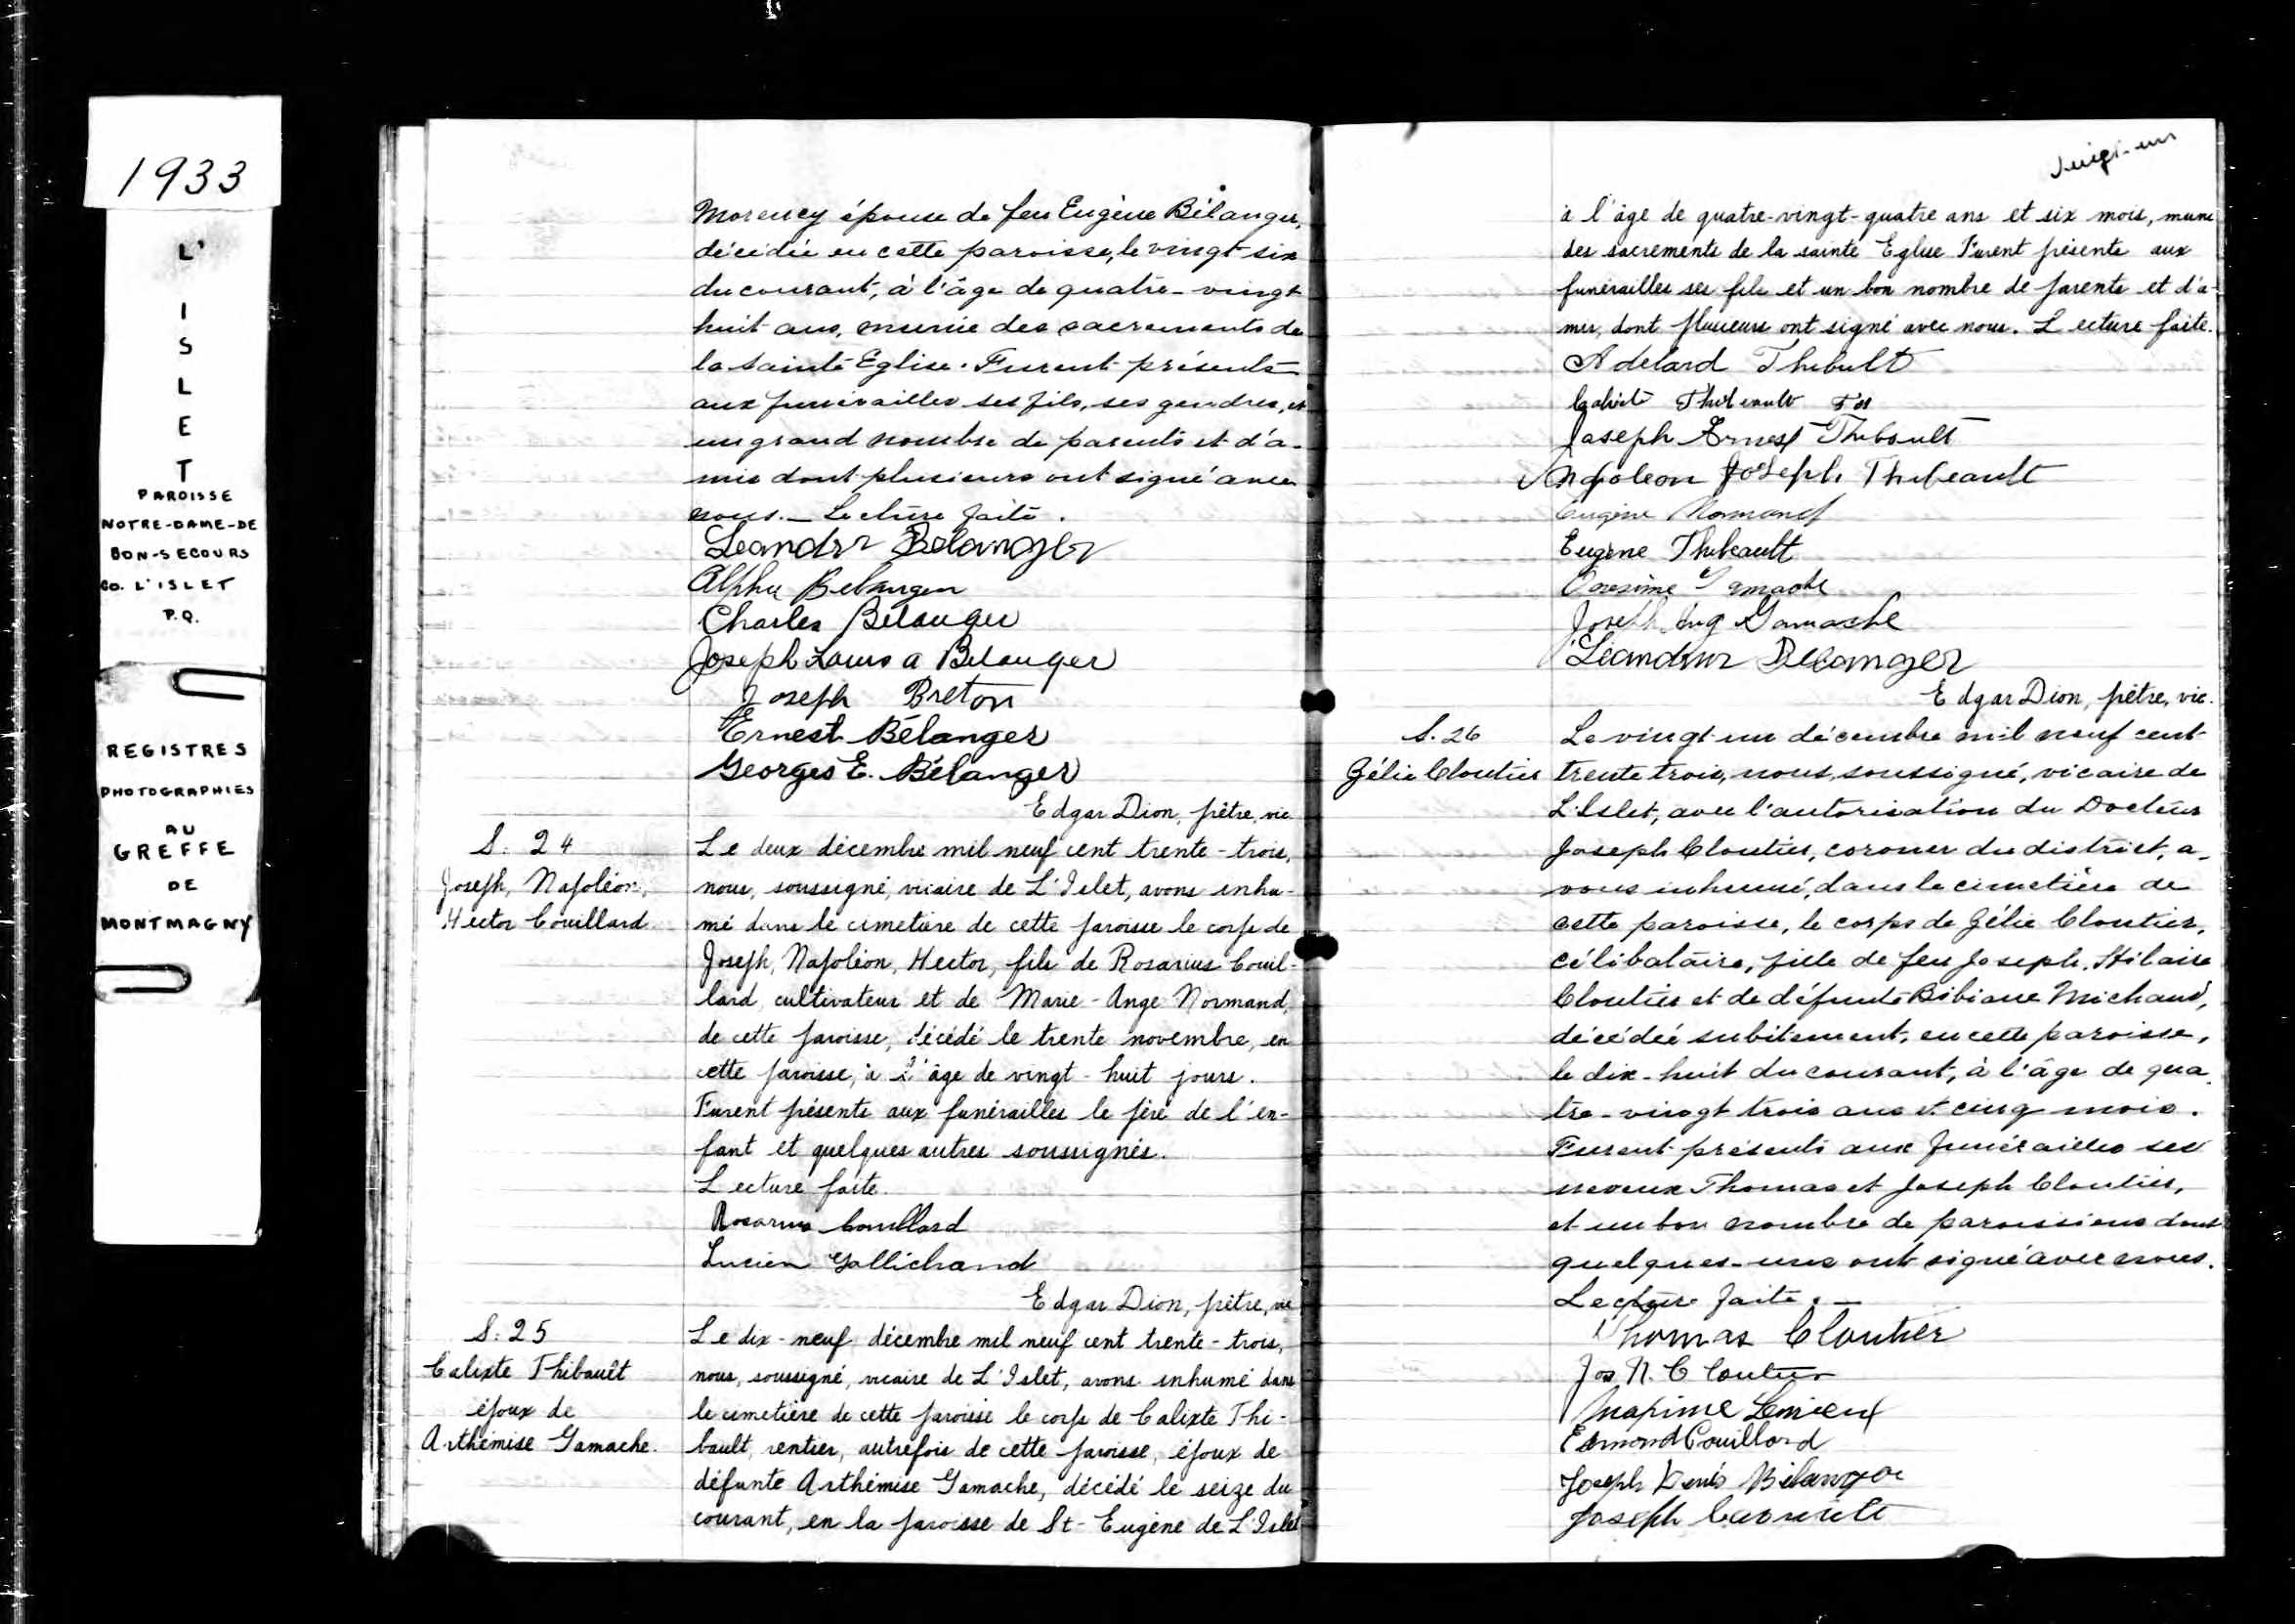 1933
L'
I
S
L
E
T
PAROISSE
NOTRE-DAME-DE
BON-SECOURS
CO. L'ISLET
P.Q.
REGISTRES
PHOTOGRAPHIES
AU
GREFFE
DE
MONTMAGNY
Morency épouse de feu Eugène Bélanger,
décédée en cette paroisse, le vingt-six
du courant, à l'âge de quatre-vingt
huit ans, munie des sacrements de
la Sainte Eglise. Furent présents
aux funérailles ses fils, ses gendres, et
un grand nombre de parents et d'a-
mis dont plusieurs ont signé avec
nous. — Lecture faite.
Leandre Belanger
Belanger
Charles Bélanger
Joseph Louis a Belanger
Joseph Breton
Ernest Bélanger
Georges E. Bélanger
Edgar Dion, prêtre, vic.
S. 24
Joseph, Napoléon,
Hector Couillard
Le deux décembre mil neuf cent trente-trois,
nous, soussigné, vicaire de L'Islet, avons inhu-
mé dans le cimetière de cette paroisse le corps de
Joseph, Napoléon, Hector, fils de Rosarius Couil-
lard, cultivateur et de Marie-Ange Normand,
de cette paroisse, décédé le trente novembre, en
cette paroisse, à l'âge de vingt-huit jours.
Furent présents aux funérailles le père de l'en-
fant et quelques autres soussignés.
Lecture faite.
Rosarius Couillard
Lucien Gallichand
Edgar Dion, prêtre, vic
S. 25
Calixte Thibault
époux de
Arthémise Gamache.
Le dix-neuf décembre mil neuf cent trente-trois,
nous, soussigné, vicaire de L'Islet, avons inhumé dans
le cimetière de cette paroisse le corps de Calixte Thi-
bault, rentier, autrefois de cette paroisse, époux de
défunte Arthémise Gamache, décédé le seize du
courant, en la paroisse de St-Eugène de L'Islet
vingt-un
à l'âge de quatre-vingt-quatre ans et six mois, muni
des sacrements de la sainte Eglise Furent présents aux
funérailles ses fils et un bon nombre de parents et d'a-
mis, dont plusieurs ont signé avec nous. Lecture faite.
Adelard Thibult
Thibeault
Joseph Ernest Thibault
Napoleon Joseph Thibeault
Eugène Normand
Eugene Thibeault
Onesime Gamache
Joseph Aug Gamache
Léandre Belanger
Edgar Dion, prêtre, vic.
S. 26
Zélie Cloutier
Le vingt-un décembre mil neuf cent
trente trois, nous, soussigné, vicaire de
L'Islet, avec l'autorisation du Docteur
Joseph Cloutier, coroner du district, a-
vons inhumé, dans le cimetière de
cette paroisse, le corps de Zélie Cloutier,
célibataire, fille de feu Joseph. Hilaire
Cloutier et de défunte Bibiane Michaud,
décédée subitement, en cette paroisse,
le dix-huit du courant, à l'âge de qua-
tre-vingt trois ans et cinq mois.
Furent présents aux funérailles ses
neveux Thomas et Joseph Cloutier,
et un bon nombre de paroissiens dont
quelques-uns ont signé avec nous.
Lecture faite. —
Thomas Cloutier
Jos N. Cloutier
Maxime Lemieux
Edmond Couillard
Joseph Denis Bélanger
Joseph